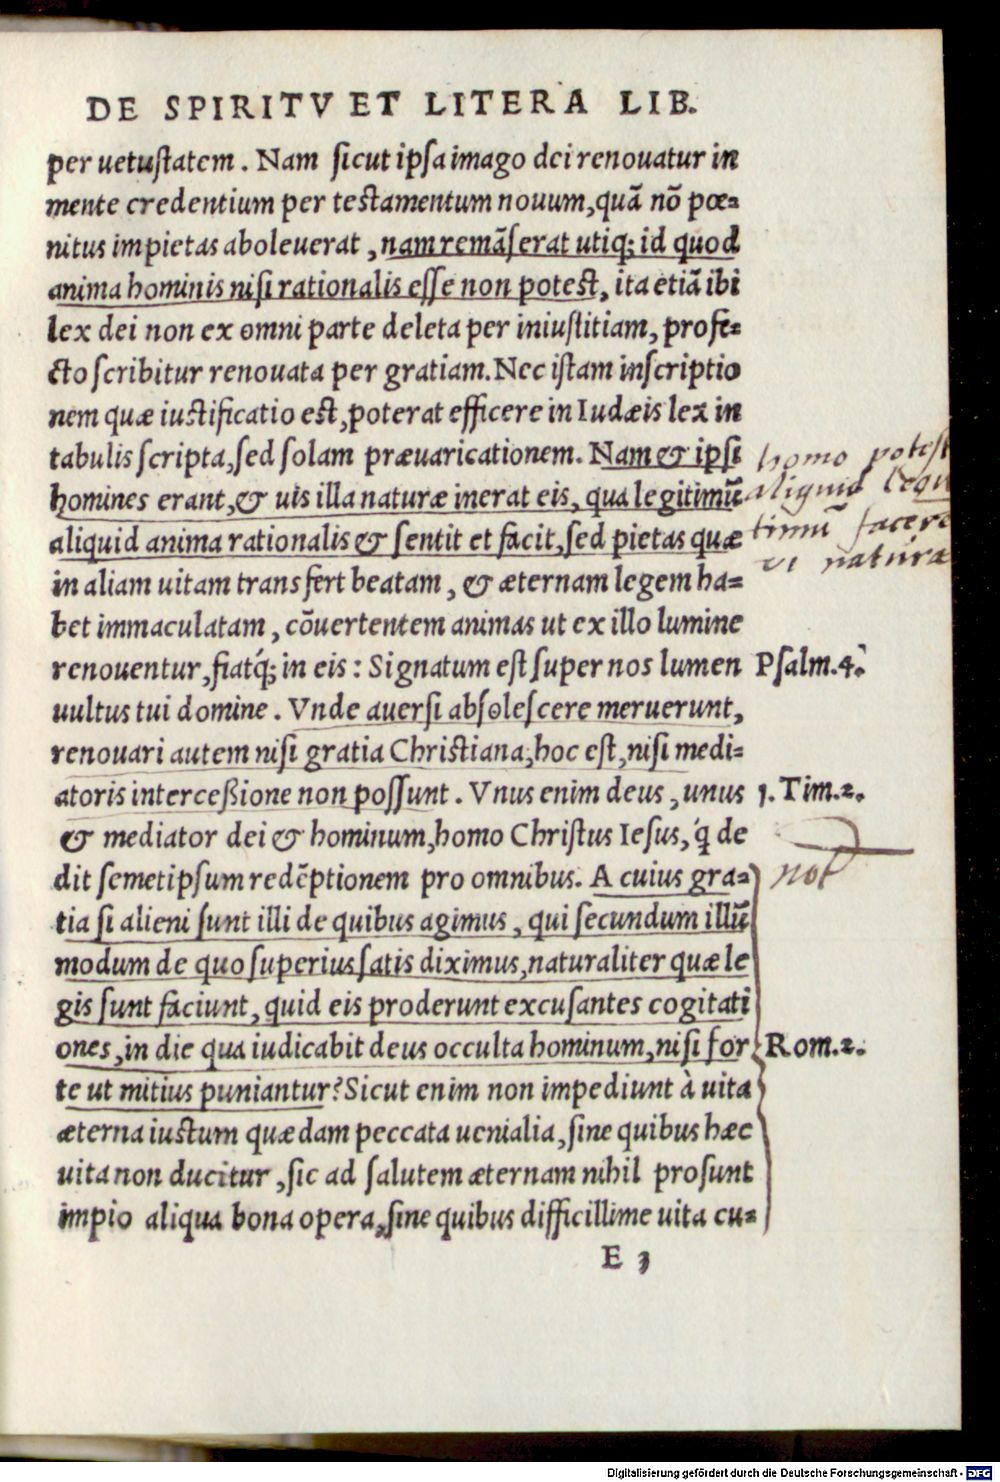 DE SPIRITV ET LITERA LIB.
per uetustatem. Nam sicut ipsa imago dei renouatur in
mente credentium per testamentum nouum, quā nō pœ-
nitus impietas aboleuerat, nam remāserat utiq; id quod
anima hominis nisi rationalis esse non potest, ita etiā ibi
lex dei non ex omni parte deleta per iniustitiam, profe-
cto scribitur renouata per gratiam. Nec istam inscriptio
nem quæ iustificatio est, poterat efficere in Iudæis lex in
tabulis scripta, sed solam præuaricationem. Nam & ipsi
homines erant, & uis illa naturæ inerat eis, qua legitimū
aliquid anima rationalis & sentit et facit, sed pietas quæ
in aliam uitam transfert beatam, & æternam legem ha-
bet immaculatam, cōuertentem animas ut ex illo lumine
renouentur, fiatq́; in eis: Signatum est super nos lumen
uultus tui domine. Vnde auersi absolescere meruerunt,
renouari autem nisi gratia Christiana, hoc est, nisi medi-
atoris interceßione non possunt. Vnus enim deus, unus
& mediator dei & hominum, homo Christus Iesus, q́ de
dit semetipsum redēptionem pro omnibus. A cuius gra-
tia si alieni sunt illi de quibus agimus, qui secundum illū
modum de quo superius satis diximus, naturaliter quæ le
gis sunt faciunt, quid eis proderunt excusantes cogitati
ones, in die qua iudicabit deus occulta hominum, nisi for
te ut mitius puniantur? Sicut enim non impediunt à uita
æterna iustum quædam peccata uenialia, sine quibus hæc
uita non ducitur, sic ad salutem æternam nihil prosunt
impio aliqua bona opera, sine quibus difficillime uita cu-
E 3
homo potest
aliquid legi
timū facere
vi natura
Psalm.4.
1. Tim.2.
not
Rom.2.
Digitalisierung gefördert durch die Deutsche Forschungsgemeinschaft - DFG